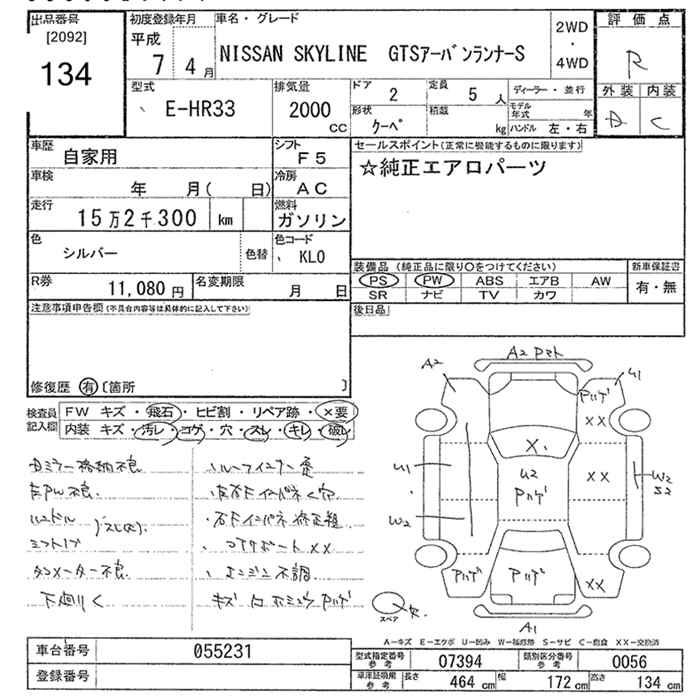 出品番号
[2092]
134
初度登録年月
平成
7 4月
車名・グレード
NISSAN SKYLINE GTSアーバンランナーS
2WD
・
4WD
評価点
R
外装 内装
D C
型式
E-HR33
排気量
2000
CC
ドア
2
定員
5 人
ディーラー・並行
モデル年式 年
形状
クーペ
積載
kg
ハンドル 左・右
車歴
自家用
シフト
F5
セールスポイント(正常に機能するものに限ります)
☆純正エアロパーツ
車検
年 月( 日)
冷房
AC
走行
15万2千300 km
燃料
ガソリン
色
シルバー
色替
色コード
KL0
装備品(純正品に限り○をつけてください)
PS PW ABS エアB AW
SR ナビ TV カワ
新車保証書
有・無
R券
11,080円
名変期限
月 日
後日品
注意事項申告欄(不具合内容等は具体的に記入して下さい)
修復歴 有 〔箇所 〕
検査員記入欄
FW キズ・飛石・ヒビ割・リペア跡・×要
内装 キズ・汚レ・コゲ・穴・スレ・キレ・破レ
Dミラー格納不良
ハンドル
シフトノブ
タコメーター不良
下廻りく
エンジン不調
A2
U1
××
×.
U2
W2
A1
スペア
A-キズ E-エクボ U-凹み W-補修跡 S-サビ C-腐食 XX-交換済
車台番号
055231
登録番号
型式指定番号
参考
07394
類別区分番号
参考
0056
車庫証明用
参考
長さ
464 cm
幅
172 cm
高さ
134 cm